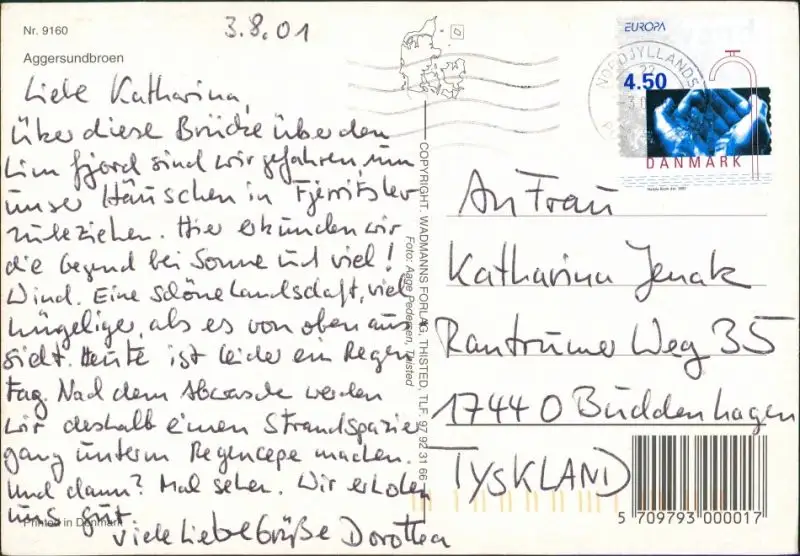 Nr. 9160
3.8.01
Aggersundbroen
Liebe Katharina,
Über diese Brücke über den
Limfjord sind wir gefahren, um
unser Häuschen in Fjerritslev
zu beziehen. Hier erkunden wir
die Gegend bei Sonne und viel!
Wind. Eine schöne Landschaft, viel
hügeliger, als es von oben aus
sieht. Heute ist leider ein Regen
tag. Nach dem Abwasch werden
wir deshalb einen Strandspazier
gang unterm Regencape machen.
Und dann? Mal sehen. Wir erholen
uns gut.
Viele Liebe Grüße Dorothea
Printed in Denmark
COPYRIGHT. WADMANNS FORLAG, THISTED, TLF. 97 92 31 66
Foto: Aage Pedersen, Thisted
EUROPA
4.50
DANMARK
NORDJYLLANDS
An Frau
Katharina Jenak
Rantrumer Weg 35
17440 Buddenhagen
TYSKLAND
5 709793 000017